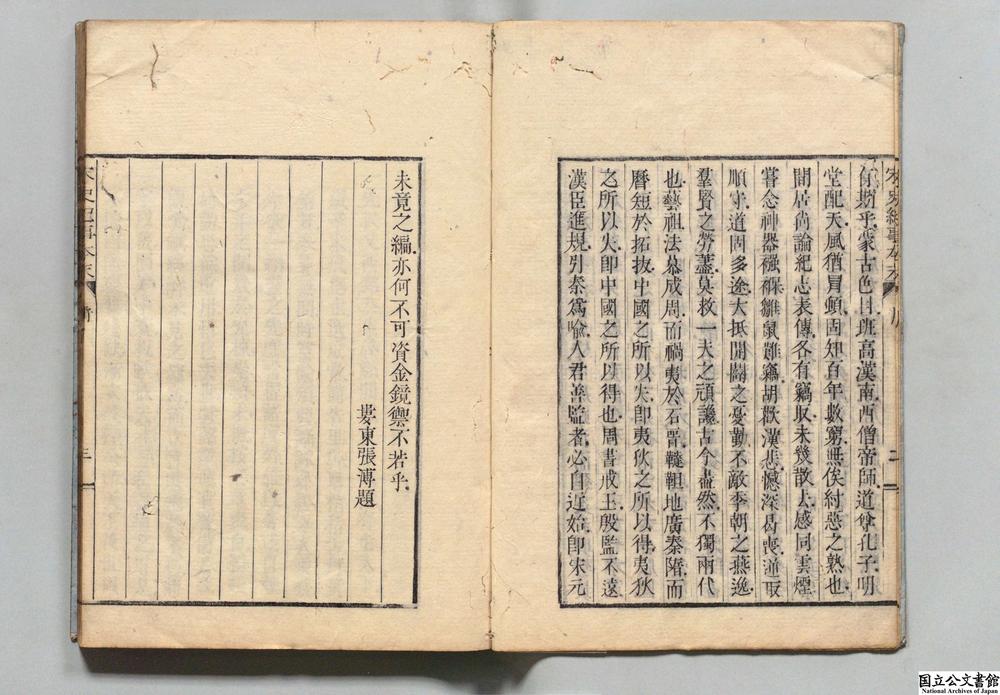 宋史紀事本末 序 二
有斯乎蒙古色目班高漢南西僧帝師道尊孔子明
堂配天風猶冒頓固知百年數窮無俟紂惡之熟也
間居尚論紀志表傳各有竊取未幾散去感同雲煙
暮念神器强稞雛鼠難竊胡歡漢悲憾深曷喪逆取
順守道固多途大抵開闢之憂勤不敵季朝之燕逸
羣賢之勞藎莫救一夫之頑讒古今盡然不獨兩代
也藝祖法慕成周而禍夷於石晉韃靼地廣秦隋而
曆短於拓拔中國之所以失卽夷狄之所以得夷狄
之所以失卽中國之所以得也周書戒王殷監不遠
漢臣進規引秦爲喻人君善監者必自近始卽宋元
未竟之編亦何不可資金鏡禦不若乎
婁東張溥題
宋史紀事本末 序 三
国立公文書館
National Archives of Japan